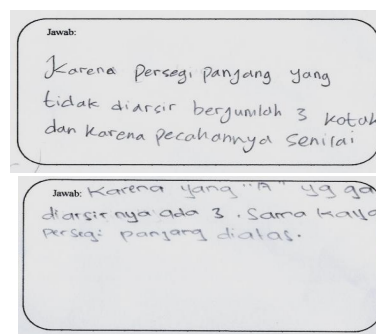 Jawab:
Karena persegi panjang yang
tidak diarsir berjumlah 3 kotak
dan karena pecahannya senilai
Jawab: Karena yang "A" yg ga
diarsir nya ada 3. Sama kaya
persegi panjang diatas.